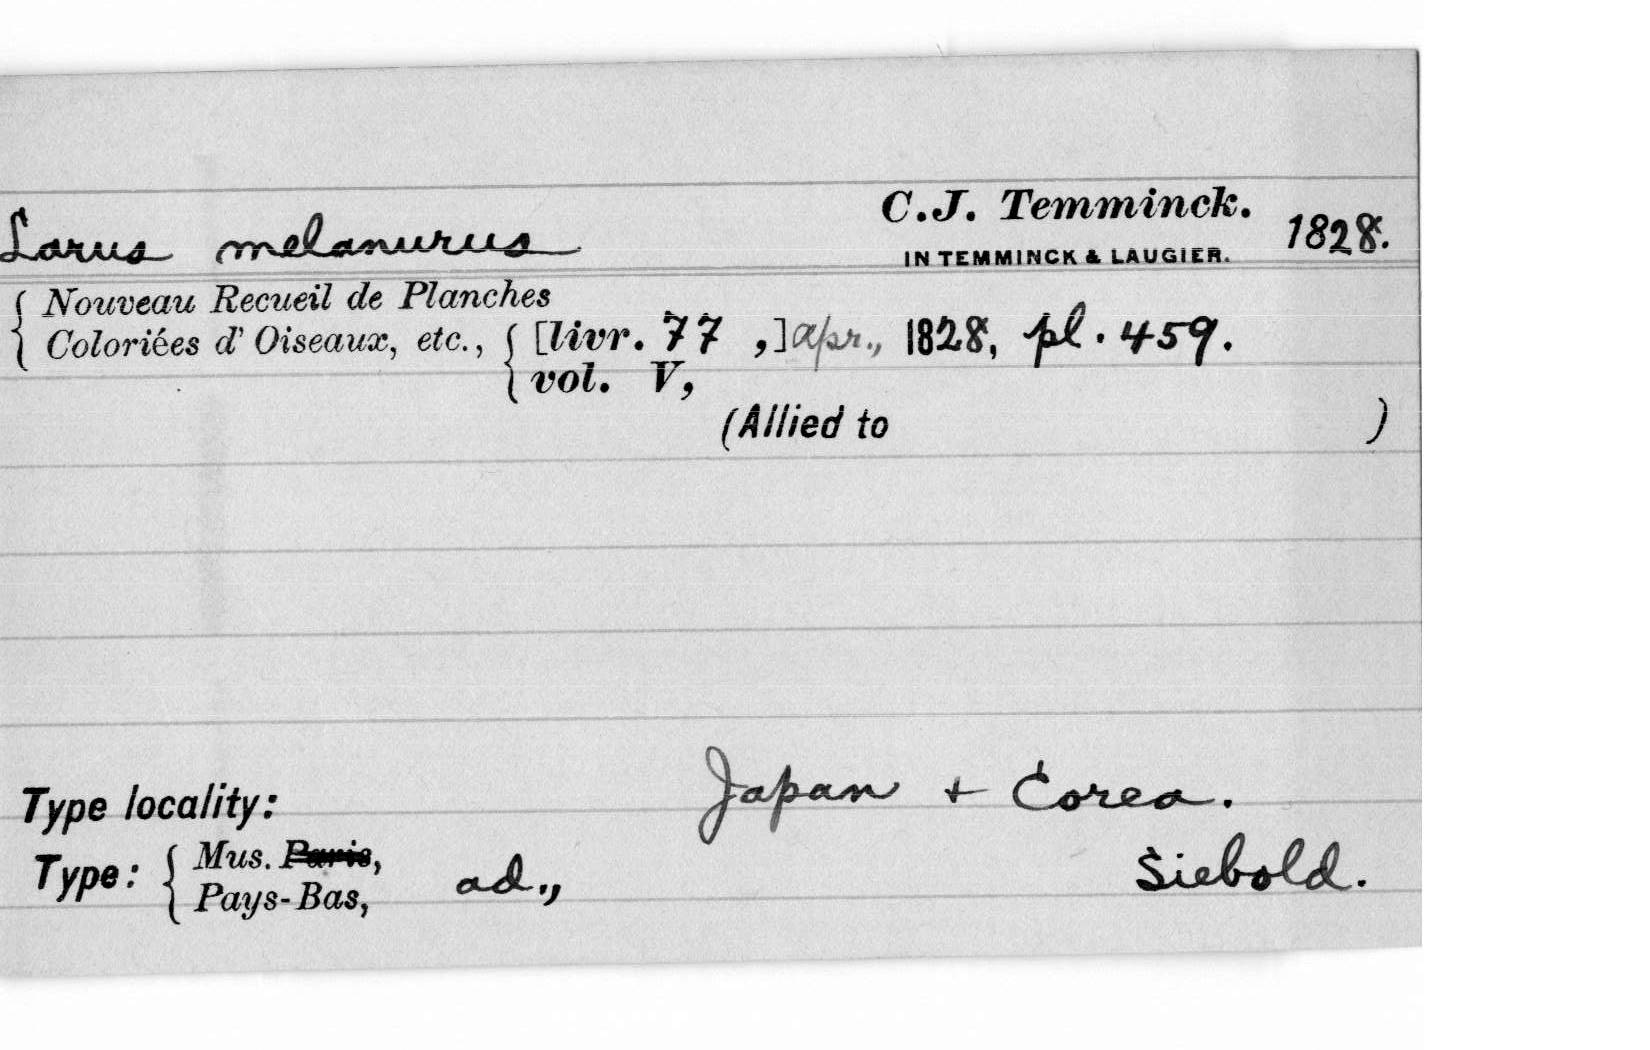 Larus melanurus C.J. Temminck. 1828.
IN TEMMINCK & LAUGIER.
Nouveau Recueil de Planches
Coloriées d' Oiseaux, etc., [livr. 77 ,] apr., 1828, pl. 459.
vol. V,
(Allied to )
Type locality: Japan + Corea.
Type: Mus. Paris, ad., Siebold.
Pays-Bas,